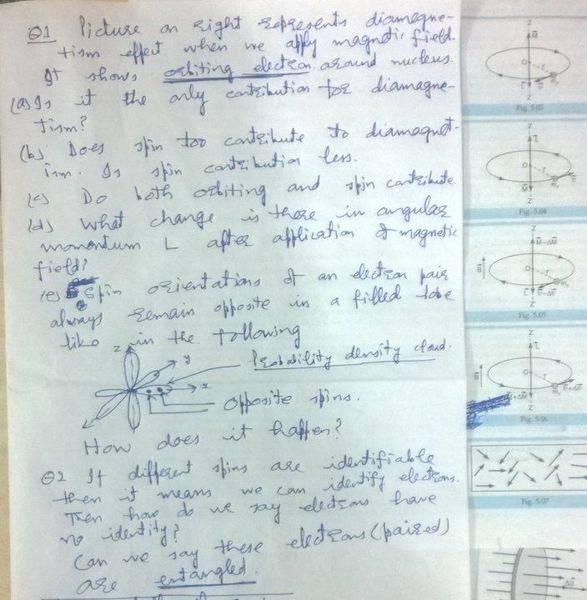 Q1 Picture on right represents diamagne-
tism effect when we apply magnetic field.
It shows orbiting electron around nucleus.
(a) Is it the only contribution for diamagne-
tism?
(b) Does spin too contribute to diamagnet-
ism. Is spin contribution less.
(c) Do both orbiting and spin contribute.
(d) What change is there in angular
momentum L after application of magnetic
field?
(e) Spin orientations of an electron pair
always remain opposite in a filled lobe
like in the following
z
y
x
Probability density cloud.
Opposite spins.
How does it happen?
Q2 If different spins are identifiable
then it means we can identify electrons.
Then how do we say electrons have
no identity?
Can we say these electrons (paired)
are entangled.
Z
O
r
Z
Fig. 5.03
Z
L
O
r
Z
Fig. 5.04
Z
O
r
Z
Fig. 5.05
Z
L
O
r
Z
Fig. 5.06
Fig. 5.07